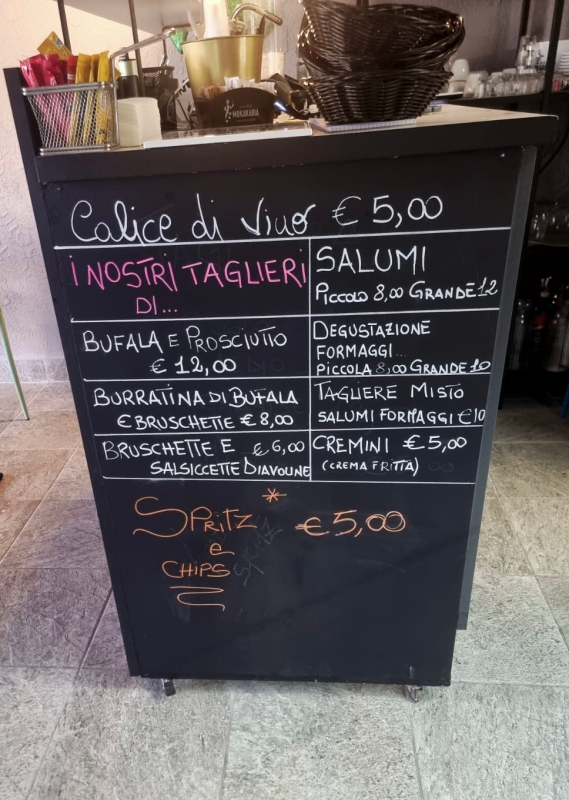 MOKARABIA
Calice di Vino € 5,00
I NOSTRI TAGLIERI
DI...
SALUMI
Piccolo 8,00 GRANDE 12
BUFALA E PROSCIUTTO
€ 12,00
DEGUSTAZIONE
FORMAGGI...
PICCOLA 8,00 GRANDE 10
BURRATINA DI BUFALA
E BRUSCHETTE € 8,00
TAGLIERE MISTO
SALUMI FORMAGGI €10
BRUSCHETTE E € 6,00
SALSICCETTE DIAVOLINE
CREMINI € 5,00
(CREMA FRITTA)
SPRITZ * € 5,00
e
CHIPS